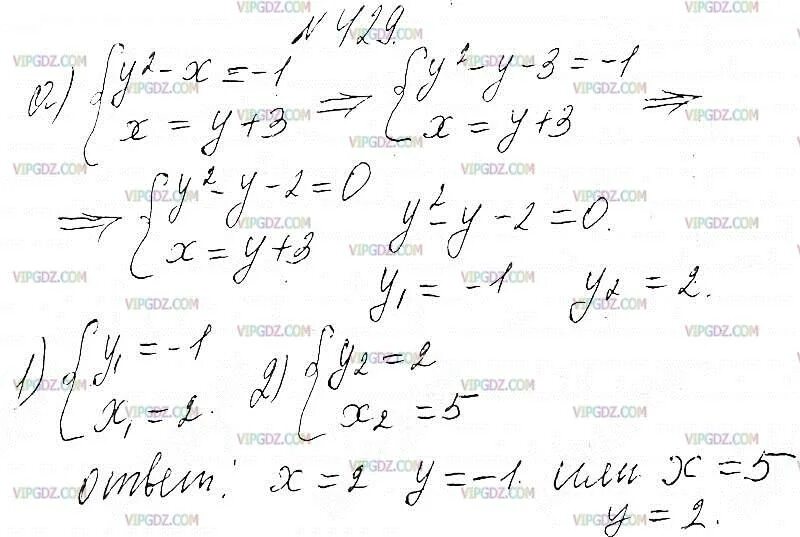 № 429.
а) { y² - x = -1 ⇒ { y² - y - 3 = -1 ⇒
x = y + 3 x = y + 3
⇒ { y² - y - 2 = 0 y² - y - 2 = 0.
x = y + 3
y₁ = -1 y₂ = 2.
1) { y₁ = -1 2) { y₂ = 2
x₁ = 2. x₂ = 5
ответ: x = 2 y = -1. или x = 5
y = 2.
VIPGDZ.COM